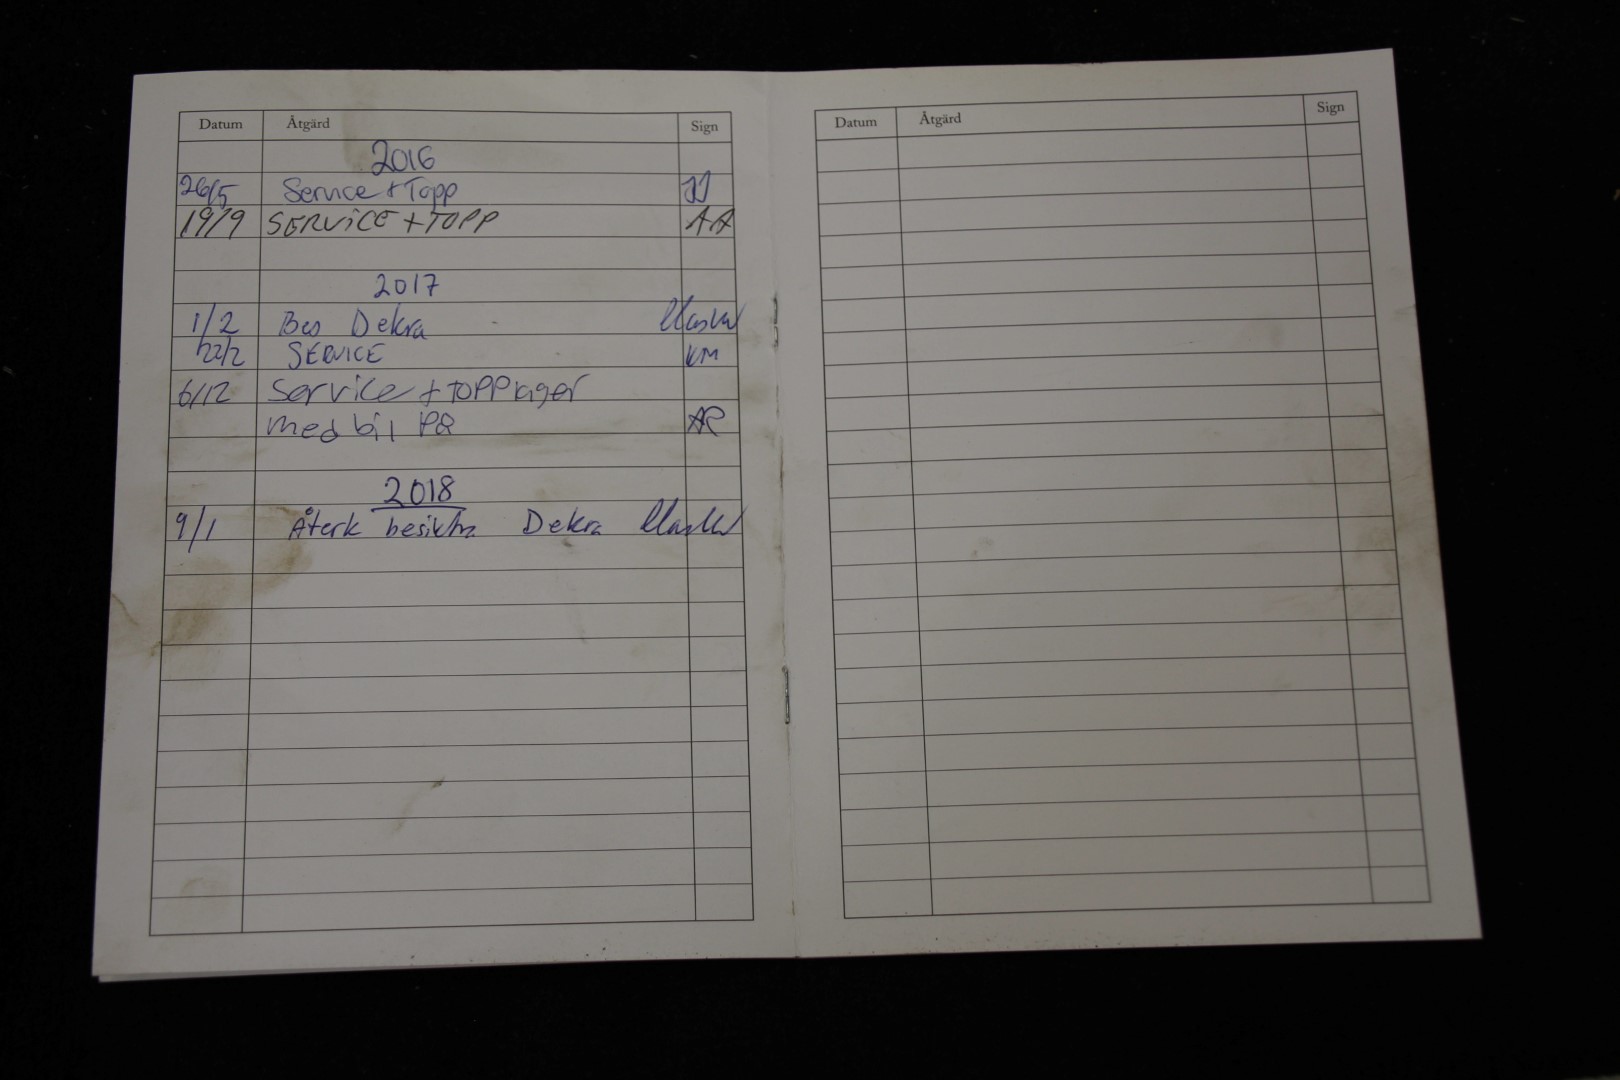 Datum Åtgärd Sign
2016
26/5 Service + Topp JJ
19/9 SERVICE + TOPP AA
2017
1/2 Bes Dekra
22/2 SERVICE KM
6/12 Service + TOPP lager
med bil P8 AR
2018
9/1 Återk besiktn Dekra
Datum Åtgärd Sign